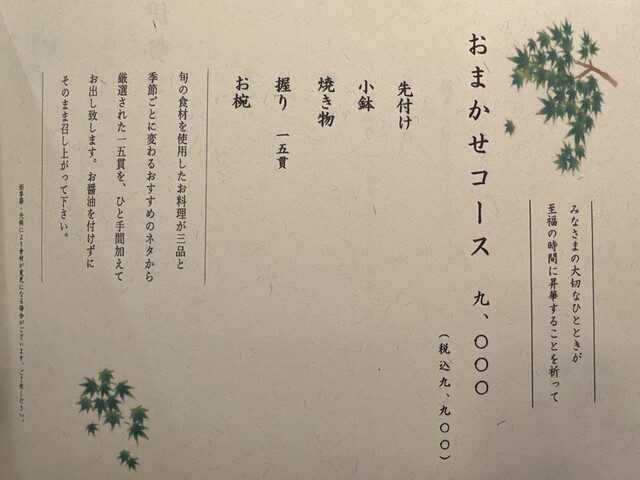 みなさまの大切なひとときが
至福の時間に昇華することを祈って
おまかせコース 九、〇〇〇
(税込九、九〇〇)
先付け
小鉢
焼き物
握り 一五貫
お椀
旬の食材を使用したお料理が三品と
季節ごとに変わるおすすめのネタから
厳選された一五貫を、ひと手間加えて
お出し致します。お醤油を付けずに
そのまま召し上がって下さい。
※季節・天候により食材が変更になる場合がございます。ご了承ください。